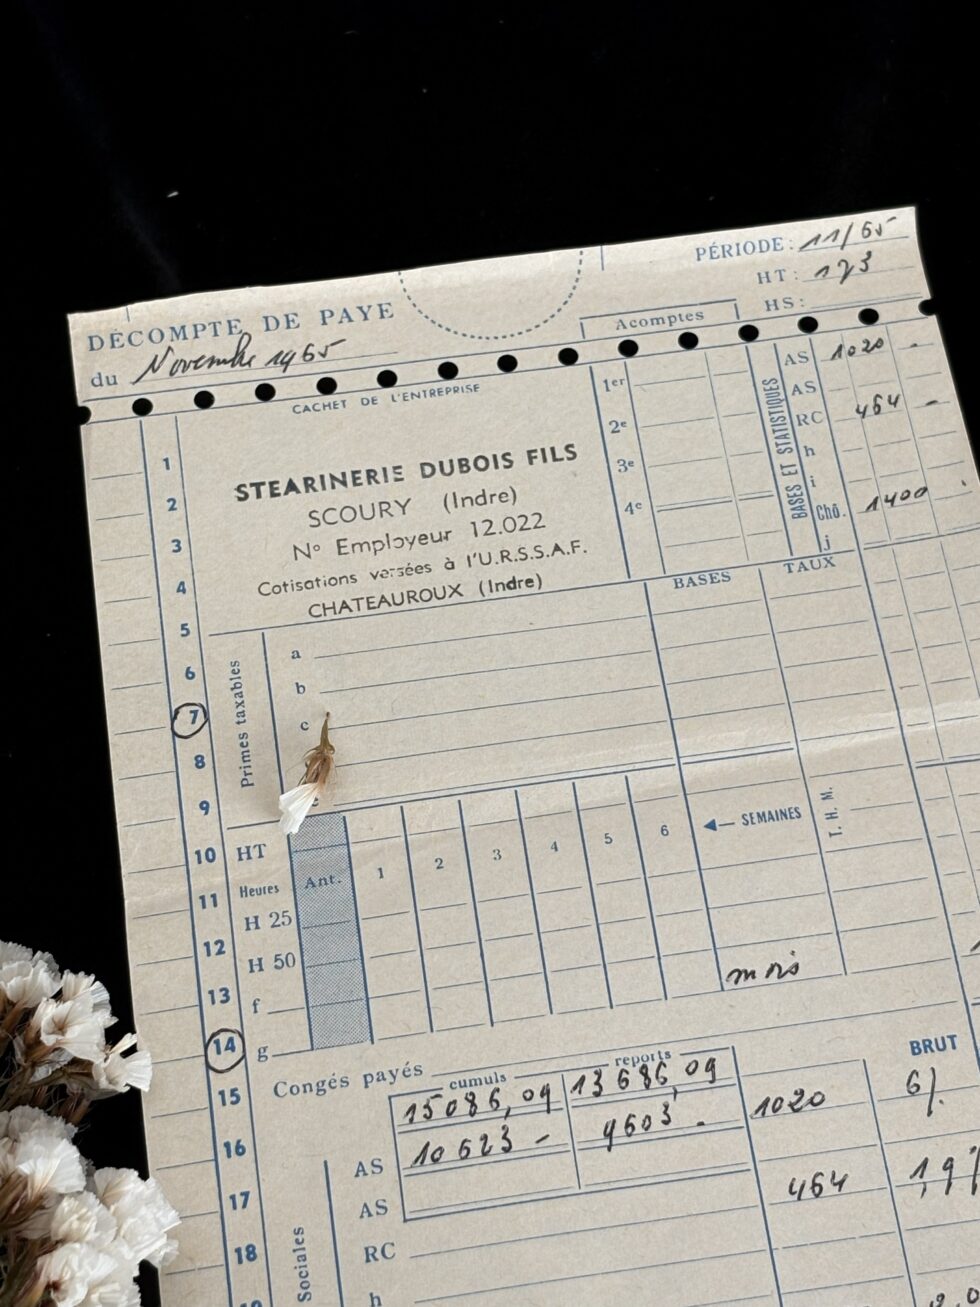 PÉRIODE: 11/65
HT: 173
HS:
DÉCOMPTE DE PAYE
du Novembre 1965
Acomptes
1er
2e
3e
4e
BASES ET STATISTIQUES
AS 1020 -
AS
RC 464 -
h
i
Chô. 1400
j
CACHET DE L'ENTREPRISE
STEARINERIE DUBOIS FILS
SCOURY (Indre)
No Employeur 12.022
Cotisations versées à l'U.R.S.S.A.F.
CHATEAUROUX (Indre)
BASES
TAUX
1
2
3
4
5
6
7
8
9
10
11
12
13
14
15
16
17
18
Primes taxables
a
b
c
e
HT
Heures
H 25
H 50
f
g
Ant.
1
2
3
4
5
6
SEMAINES
T. H. M.
mois
BRUT
Congés payés
cumuls
reports
15086,09
13686,09
1020
6%
AS 10623 -
9603 -
AS
464
RC
h
Sociales